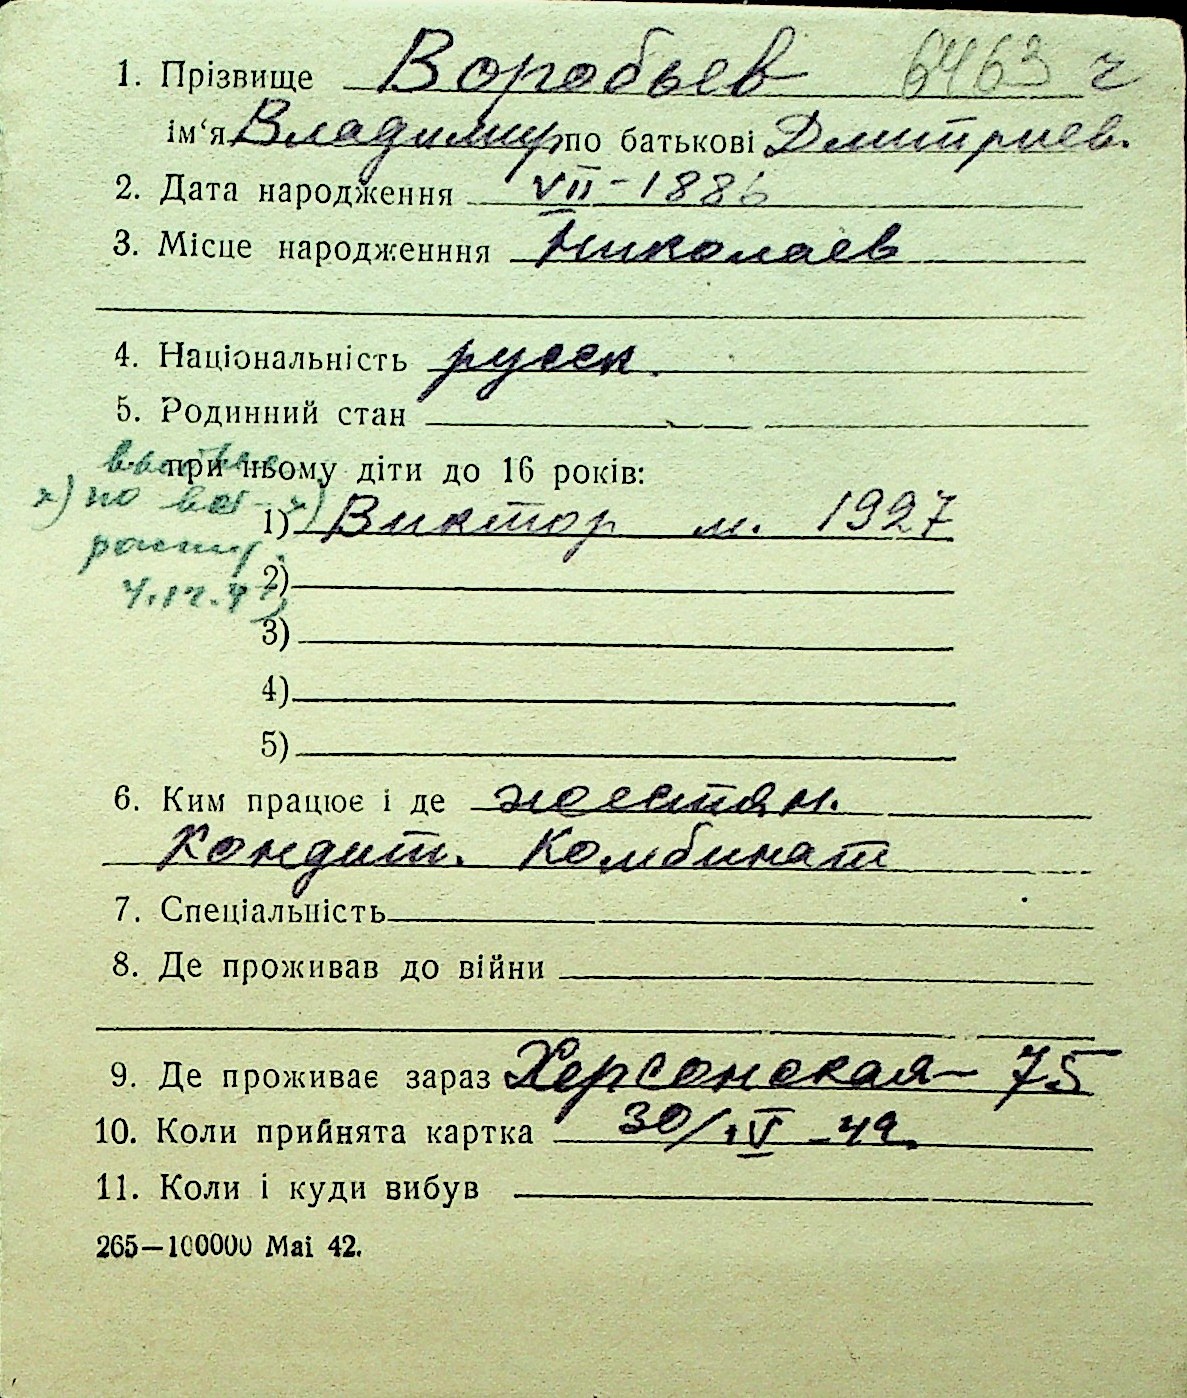 1. Прізвище Воробьев 6463 ч
ім‘я Владимир по батькові Дмитриев.
2. Дата народження VII-1886
3. Місце народженння Николаев
4. Національність русск.
5. Родинний стан
при ньому діти до 16 років:
x) по
1) Виктор м. 1927
2)
3)
4)
5)
6. Ким працює і де жестян.
Кондит. Комбинат
7. Спеціальність
8. Де проживав до війни
9. Де проживає зараз Херсонская - 75
10. Коли прийнята картка 30/IV-42.
11. Коли і куди вибув
265—100000 Mai 42.